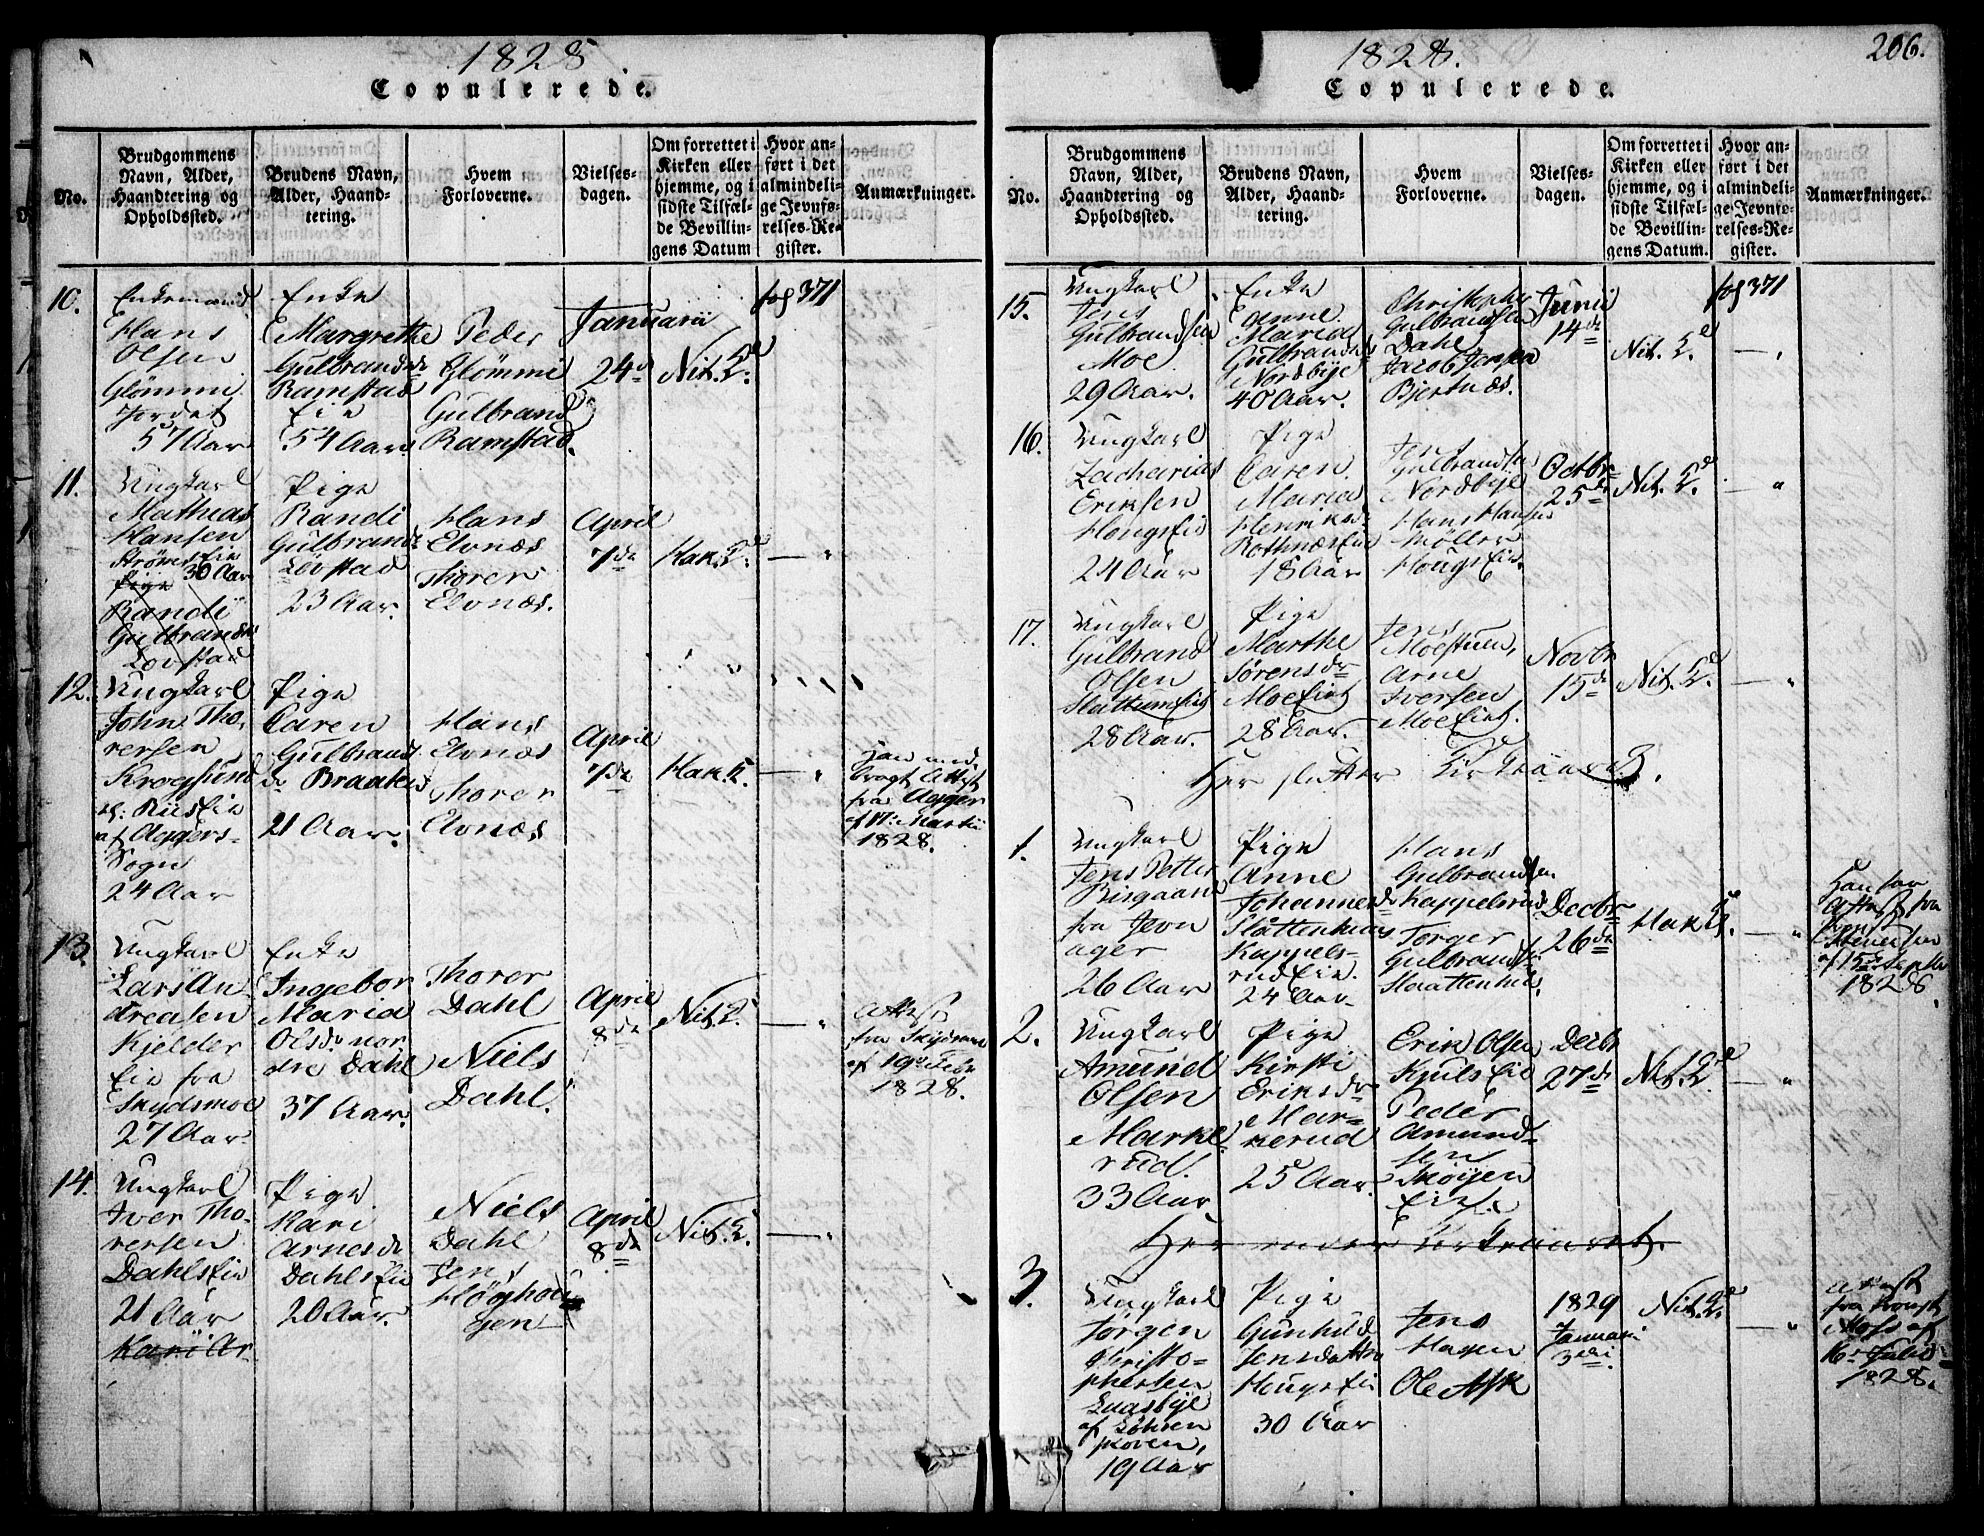 1828
Copulerede.
No.
Brudgommens
Navn, Alder,
Haandtering og
Opholdssted.
Brudens Navn,
Alder, Haand-
tering.
Hvem
Forloverne.
Vielses-
dagen.
Om forrettet i
Kirken eller
hjemme, og i
sidste Tilfæl-
de Bevillin-
gens Datum
Hvor an-
ført i det
almindeli-
ge Jevnfø-
relses-Re-
gister.
Anmærkninger.
10.
Enkemand
Hans
Olsen
Glömmi
Jordet
57 Aar
Enke
Margrethe
Gulbrandsdr
Ramstad
Eie
54 Aar
Peder
Glömmi
Gulbrand
Ramstad.
Januarii
24de
Nit. K.
fog 371
11.
Ungkarl
Mathias
Hansen
Ströms Eie
30 Aar
Pige
Randi
Gulbrandsdr
Lövstad
Pige
Randi
Gulbrandsdr
Lövstad
23 Aar.
Hans
Elvnæs
Thorer
Elvnæs.
April
7de
Hak. K.
— "
12.
Ungkarl
John Tho-
rersen
Krogsund
Riis Eie
af Aggers-
Sogn
24 Aar
Pige
Caren
Gulbrands
dr Braaten
21 Aar.
Hans
Elvnæs
Thorer
Elvnæs
April
7de
Hak. K.
— "
Han med
bragt Attest
fra Agger
af 17 Martii
1828.
13.
Ungkarl
Lars An-
dreasen
Kjelder
Eie fra
Skydsmoe
27 Aar
Enke
Ingebor
Maria
Olsdr nor-
dre Dahl
37 Aar.
Thorer
Dahl
Niels
Dahl.
April
8de
Nit. K.
— "
Attest
fra Skydsmoe
af 19de Febr
1828.
14.
Ungkarl
Iver Tho-
rersen
Dahls Eie
21 Aar
Kari Ar
Pige
Kari
Arnesdr
Dahls Eie
20 Aar.
Niels
Dahl
Jens
Höghou
gen
April
8de
Nit. K.
— "
1828.
206.
Copulerede.
No.
Brudgommens
Navn, Alder,
Haandtering og
Opholdssted.
Brudens Navn,
Alder, Haand-
tering.
Hvem
Forloverne.
Vielses-
dagen.
Om forrettet i
Kirken eller
hjemme, og i
sidste Tilfæl-
de Bevillin-
gens Datum.
Hvor an-
ført i det
almindeli-
ge Jevnfø-
relses-Re-
gister.
Anmærkninger.
15.
Ungkarl
Jens
Gulbrandsen
Moe
29 Aar.
Enke
Anne
Maria
Gulbrandsdr
Nordbye
40 Aar.
Christopher
Gulbrandsen
Dahl
Jacob Jensen
Bjertnæs.
Junii
14de
Nit. K.
fog 371
— "
16.
Ungkarl
Zacharias
Eriksen
Hougs Eie
24 Aar
Pige
Caren
Maria
Henriksdr
Rothnæs Eie
18 Aar
Jens
Gulbrandsen
Nordbye
Hans Hansen
Möller
Hougs Eie.
Octbr
25de
Nit. K.
— "
17.
Ungkarl
Gulbrand
Olsen
Slattums Eie
28 Aar.
Pige
Marthe
Sörensdr
Moe Eiet
28 Aar.
Jens
Moestuen,
Arne
Iversen
Moe Eiet.
Novbr
15de
Nit. K.
— "
Her slutter Kirkeaaret.
1.
Ungkarl
Jens Petter
Bisgaard
fra Jevn
ager
26 Aar
Pige
Anne
Johannesdr
Slattenhuus
Kappels-
rud Eie.
24 Aar
Hans
Gulbrandsen
Kappelsrud
Torger
Gulbrandsen
Slaattenhuus.
Decbr
26de
Hak K.
— "
Han har
Attest fra
af 15de Septbr
1828.
2.
Ungkarl
Amund
Olsen
Marke-
rud.
33 Aar
Pige
Kirsti
Eriksdr
Mar-
kerud
25 Aar
Erik Olsen
Kjuls Eie
Peder
Amund-
sen
Skøyen
Eie.
Decbr
27de
Nit. K.
— "
Her ender Kirkeaaret.
3.
Ungkarl
Jörgen
Christo-
phersen
Luasbye
af Löken
skoven,
19 Aar
Pige
Gunhild
Jensdatter
Hougs Eie
30 Aar
Jens
Hagen
Ole Ask
1829
Januari
3die
Nit. K.
— "
Attest
fra Provst
Moss af
16de Julii
1828.